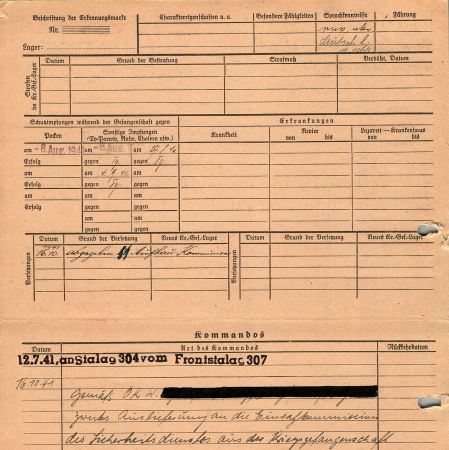 Beschriftung der Erkennungsmarke
Nr.
Lager:
Charaktereigenschaften u. a.
Besondere Fähigkeiten
Sprachkenntnisse
Führung
deutsch
Strafen im Kr.-Gef.-Lager
Datum
Grund der Bestrafung
Strafmaß
Verbüßt, Datum
Schutzimpfungen während der Gefangenschaft gegen
Erkrankungen
Pocken
Sonstige Impfungen
(Ty-Paraty, Ruhr, Cholera usw.)
Krankheit
Revier
von bis
Lazarett – Krankenhaus
von bis
am -8. Aug. 19
am -8. Aug.
am
Erfolg
gegen Ty.
gegen Ty
am
am
am
Erfolg
gegen Ty.
gegen
am
am
am
Erfolg
gegen
gegen
am
am
gegen
gegen
Versetzungen
Datum
Grund der Versetzung
Neues Kr.-Gef.-Lager
Versetzungen
Datum
Grund der Versetzung
Neues Kr.-Gef.-Lager
16.10
abgegeben
Kommandos
Datum
Art des Kommandos
Rückkehrdatum
12.7.41, an Stalag 304 vom Frontstalag 307
10.41
Gemäß O.K.W.
zwecks Auslieferung an die Einsatzkommission
des Sicherheitsdienstes aus der Kriegsgefangenschaft